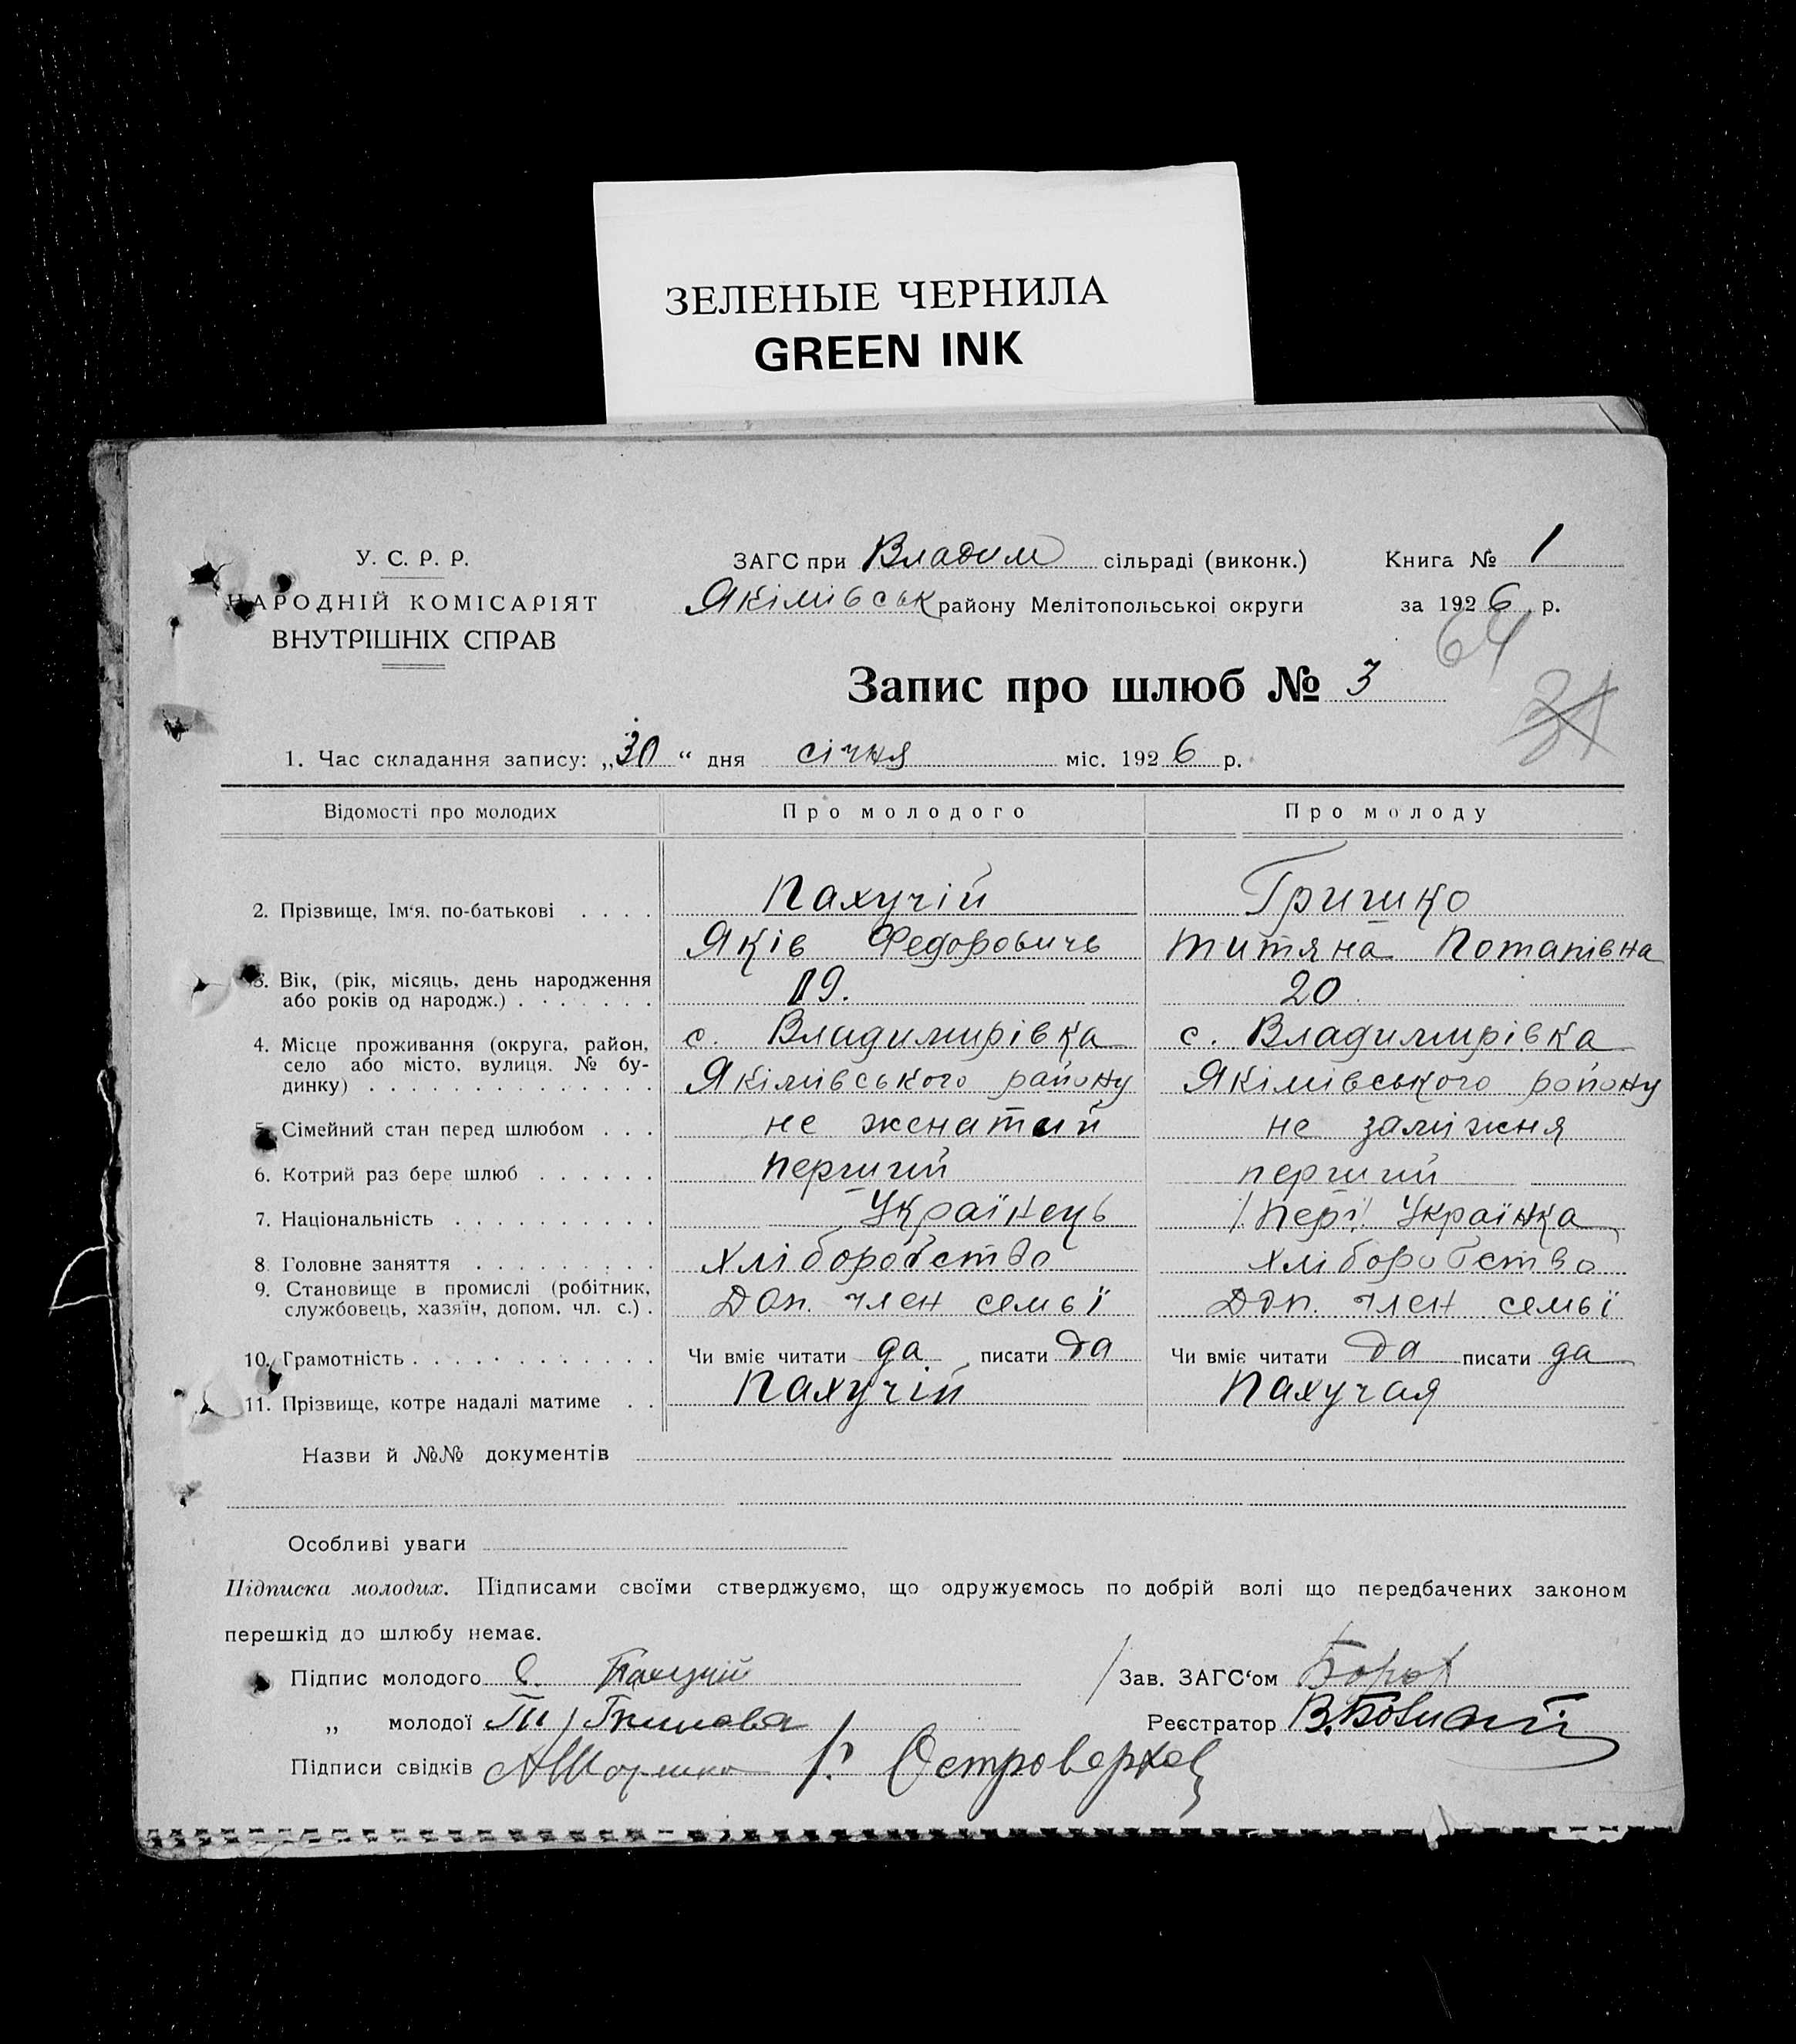 ЗЕЛЕНЫЕ ЧЕРНИЛА
GREEN INK
У. С. Р. Р.
НАРОДНІЙ КОМІСАРІЯТ
ВНУТРІШНІХ СПРАВ
ЗАГС при Владим сільраді (виконк.)
Якімівськ району Мелітопольської округи
Книга № 1
за 1926 р.
64
31
Запис про шлюб № 3
1. Час складання запису: „30“ дня січня міс. 1926 р.
Відомості про молодих Про молодого Про молоду
2. Прізвище, Ім‘я, по-батькові . . . . Пахучій Гришко
Яків Федоровичь Титяна Потапівна
3. Вік, (рік, місяць, день народження
або років од народж.) . . . . . . . 19. 20
4. Місце проживання (округа, район, с. Владимирівка с. Владимирівка
село або місто, вулиця, № бу-
динку) . . . . . . . . . . . . . . Якімівського району Якімівського району
5. Сімейний стан перед шлюбом . . . не женатий не заміжня
6. Котрий раз бере шлюб . . . . . . перший перший
7. Національність . . . . . . . . . . Українець /Пер‌ш/ Українка
8. Головне заняття . . . . . . . . . Хліборобство Хліборобство
9. Становище в промислі (робітник,
службовець, хазяїн, допом. чл. с.) . Доп. член семьї Доп. член семьї
10. Грамотність . . . . . . . . . . . . Чи вміє читати да писати да Чи вміє читати да писати да
11. Прізвище, котре надалі матиме . . Пахучій Пахучая
Назви й №№ документів
Особливі уваги
Підписка молодих. Підписами своїми стверджуємо, що одружуємось по добрій волі що передбачених законом
перешкід до шлюбу немає.
Підпис молодого Я. Пахучій Зав. ЗАГС‘ом
„ молодої Реєстратор
Підписи свідків Островерхов